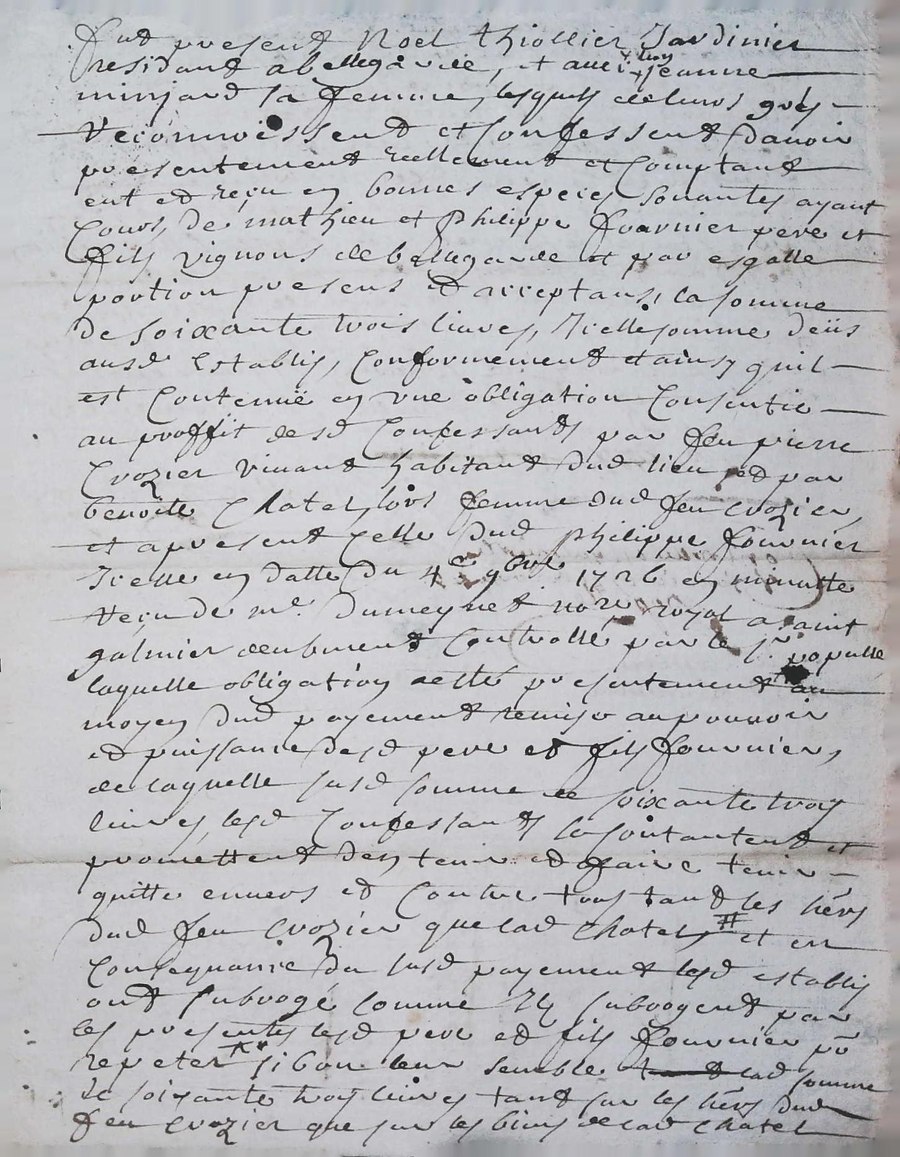 fut present Noel thiollier Jardinier
residant a bellegarde, et avec
luy
jeanne
minjard sa femme, lesquels de leurs grés
reconnoissent et Confessent davoir
presentement reellement et Comptant
eut et reçu en bonnes especes sonantes ayant
Cours, de mathieu et philippe fournier pere et
fils vignons de bellegarde et par esgalle
portion presens et acceptans, la somme
de soixante trois livres, Icelle somme deüs
ausd Establis, Conformement et ainsy quil
est Contenüe en une obligation Consentie
au proffit desd Confessants par feu pierre
Crozier vivant habitant dud lieu et par
benoite Chatel, lors femme dud feu crozier,
et apresent celle dud philippe fournier
Icelle en datte du 4e 9bre 1726 en minutte
reçu de me. Dumeynet nore royal a saint
galmier deubment Controllé par le sr. populle
laquelle obligation a esté presentement au
moyen dud payement remise au pouvoir
et puissance desd pere et fils fournier,
de laquelle susd somme de soixante trois
livres, lesd Confessants se contantent et
promettent den tenir et faire tenir
quitte envers et Contre tous tant les hers
dud feu Crozier que lad Chatel # et en
Consequance du susd payement lesd establis
ont subrogé comme Ils subrogent par
les presentes lesd pere et fils fournier po
repeter si bon leur semble lad somme
de soixante trois livres tant sur les hers dud
feu Crozier que sur les biens de lad Chatel